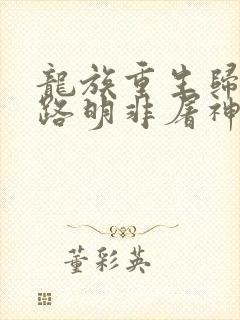 龍族重生歸
路明非屠神
董彩英